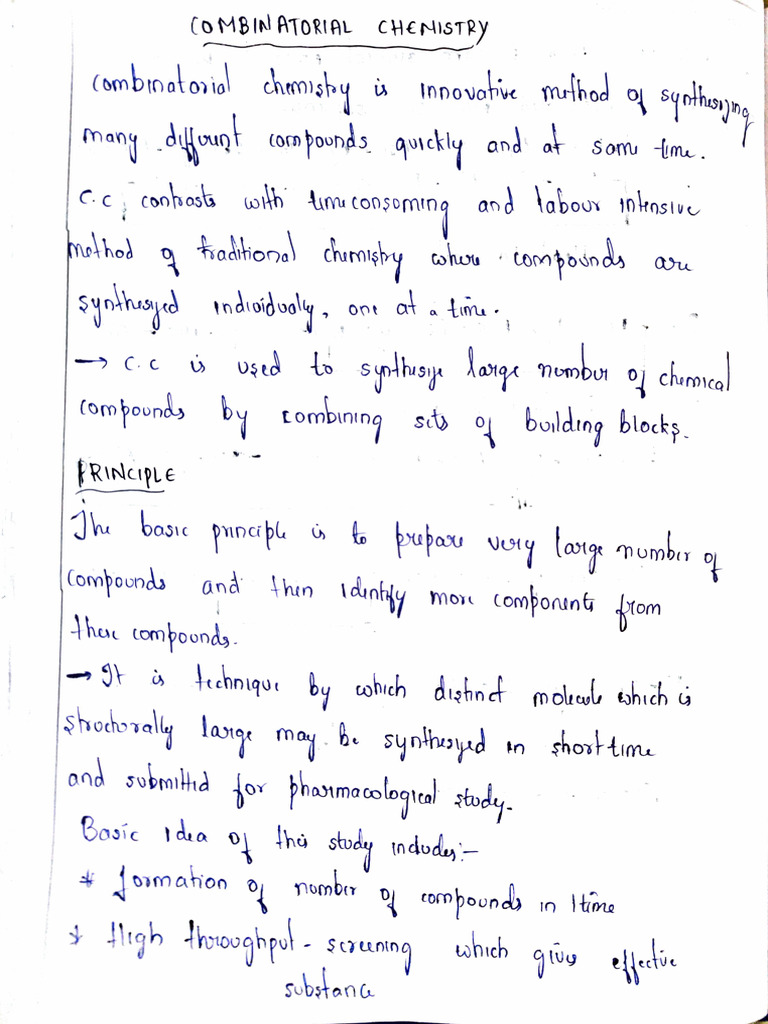 COMBINATORIAL CHEMISTRY
Combinatorial chemistry is innovative method of synthesizing
many different compounds quickly and at same time.
C.C contrasts with timeconsoming and labour intensive
method of traditional chemistry where compounds are
synthesyed individually, one at a time.
→ C.C is used to synthesize large number of chemical
compounds by combining sets of building blocks.
PRINCIPLE
The basic principle is to prepare very large number of
compounds and then identify more components from
these compounds.
→ It is technique by which distinct molecule which is
structorally large may be synthesyed in short time
and submitted for pharmacological study.
Basic idea of this study includes:-
* formation of number of compounds in 1 time
* High throughput - screening which gives effective
substance